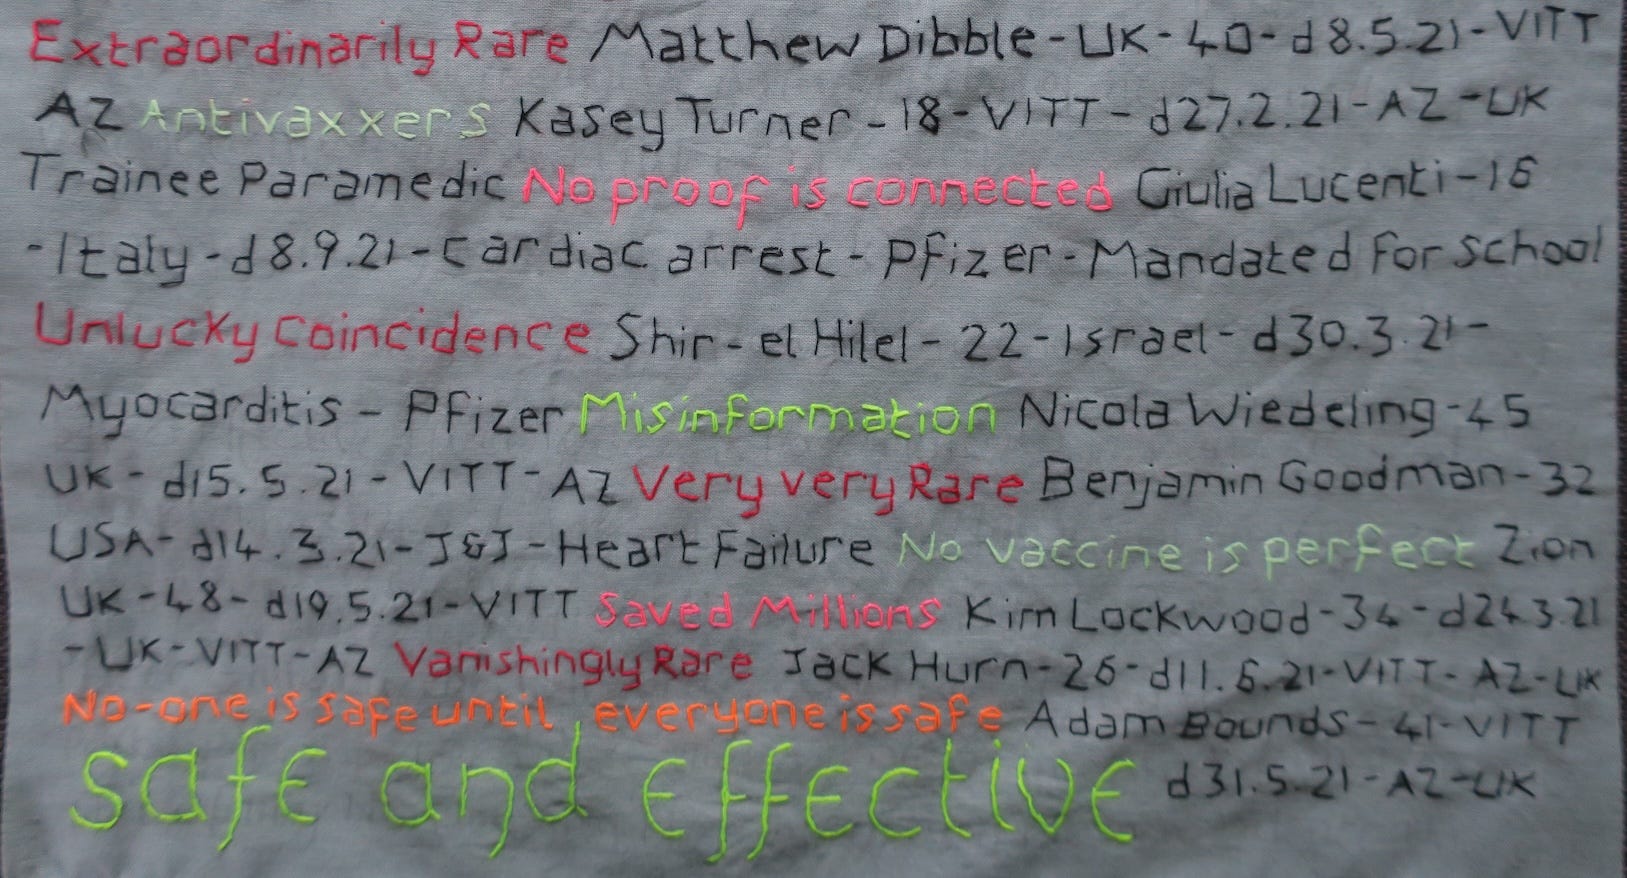 Extraordinarily Rare Matthew Dibble-UK-40-d8.5.21-VITT
AZ Antivaxxers Kasey Turner-18-VITT-d27.2.21-AZ-UK
Trainee Paramedic No proof is connected Giulia Lucenti-16
-Italy-d8.9.21-Cardiac arrest-Pfizer-Mandated for school
Unlucky Coincidence Shir-el Hilel-22-Israel-d30.3.21-
Myocarditis-Pfizer Misinformation Nicola Wiedeling-45
UK-d15.5.21-VITT-AZ Very very Rare Benjamin Goodman-32
USA-d14.3.21-J&J-Heart Failure No vaccine is perfect Zion
UK-48-d19.5.21-VITT Saved Millions Kim Lockwood-34-d24.3.21
-UK-VITT-AZ Vanishingly Rare Jack Hurn-26-d11.6.21-VITT-AZ-UK
No-one is safe until everyone is safe Adam Bounds-41-VITT
safe and effective d31.5.21-AZ-UK